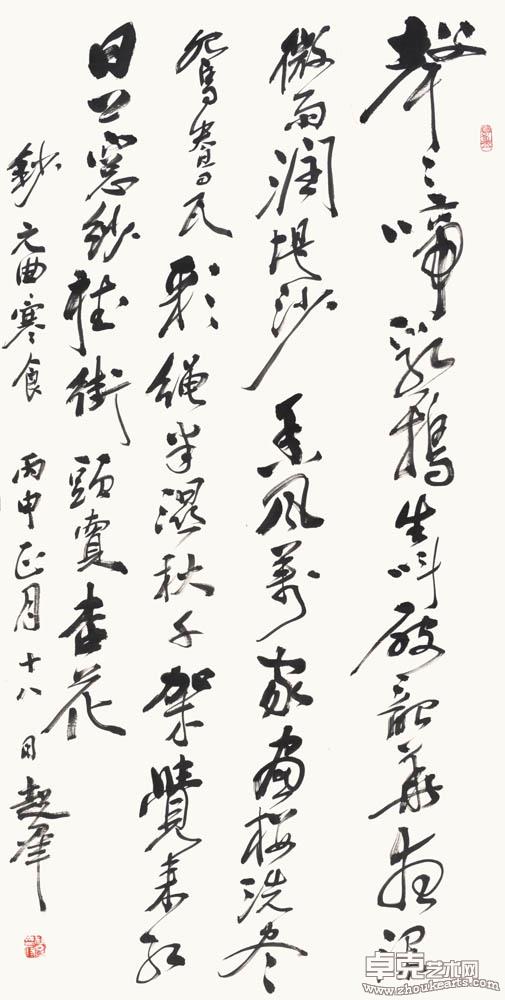 聲々啼乳鴉生叫破韶華夜深
微雨润堤沙香风萬家畫楼洗尽
鸳鸯瓦彩绳半濕秋千架覺来红
日上窓纱聽街頭賣杏花
鈔元曲寒食丙申正月十八日
卓克艺术网
www.zhoukearts.com